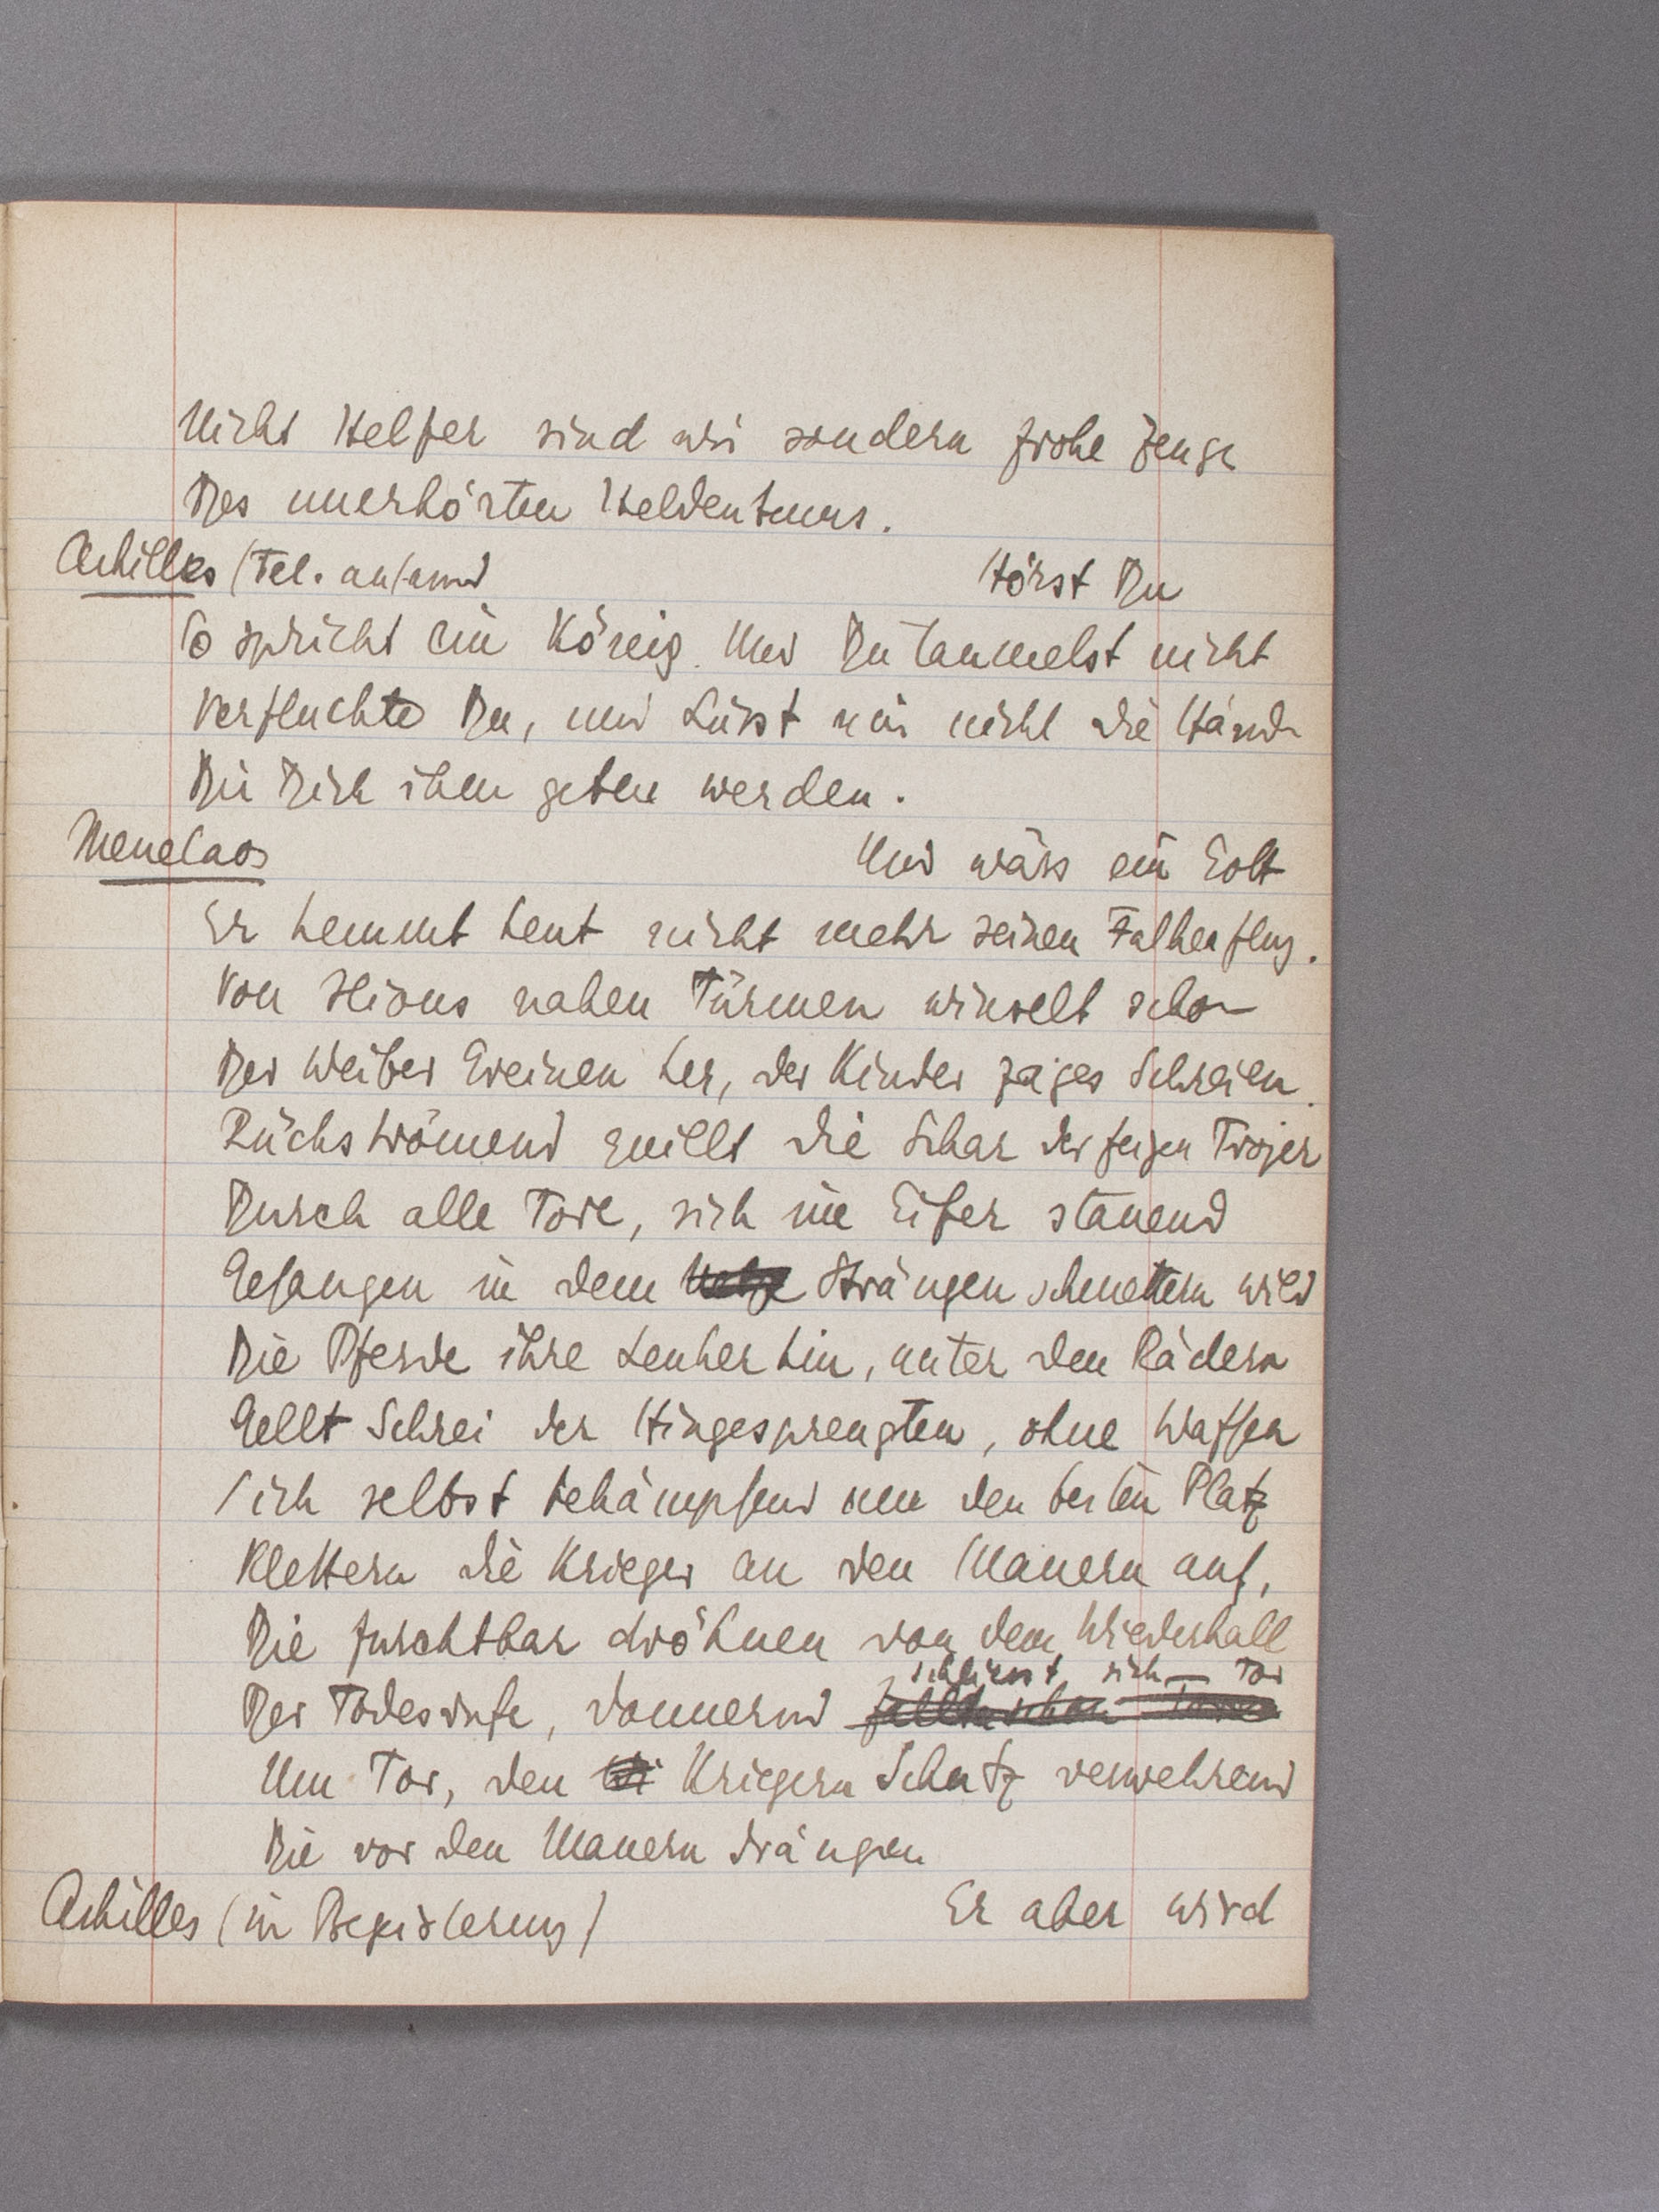 Nicht Helfer sind wir sondern frohe Zeuge
Des unerhörten Heldentums.
Achilles (Tel. anfassend Hörst Du
So spricht ein König. Und Du taumelst nicht
Verfluchte Du, und küsst mir nicht die Hände
Die Dich ihm geben werden.
Menelaos Und wärs ein Gott
Er hemmt heut nicht mehr seinen Falkenflug.
Von Ilions nahen Türmen winselt schon
Der Weiber Greinen her, der Kinder zages Schreien.
Rückströmend quillt die Schar der feigen Trojer
Durch alle Tore, sich im Eifer stauend
Gefangen in dem Netze Strängen schmettern wild
Die Pferde ihre Lenker hin, unter den Rädern
Gellt Schrei der Hingesprengten, ohne Waffen
Sich selbst bekämpfend um den besten Platz
Klettern die Krieger an den Mauern auf,
Die furchtbar dröhnen von dem Wiederhall
schliesst sich Tor
Der Todesrufe, donnernd
Um Tor, den Kriegern Schutz verwehrend
Die vor den Mauern drängen
Achilles (in Begeisterung) Er aber wird